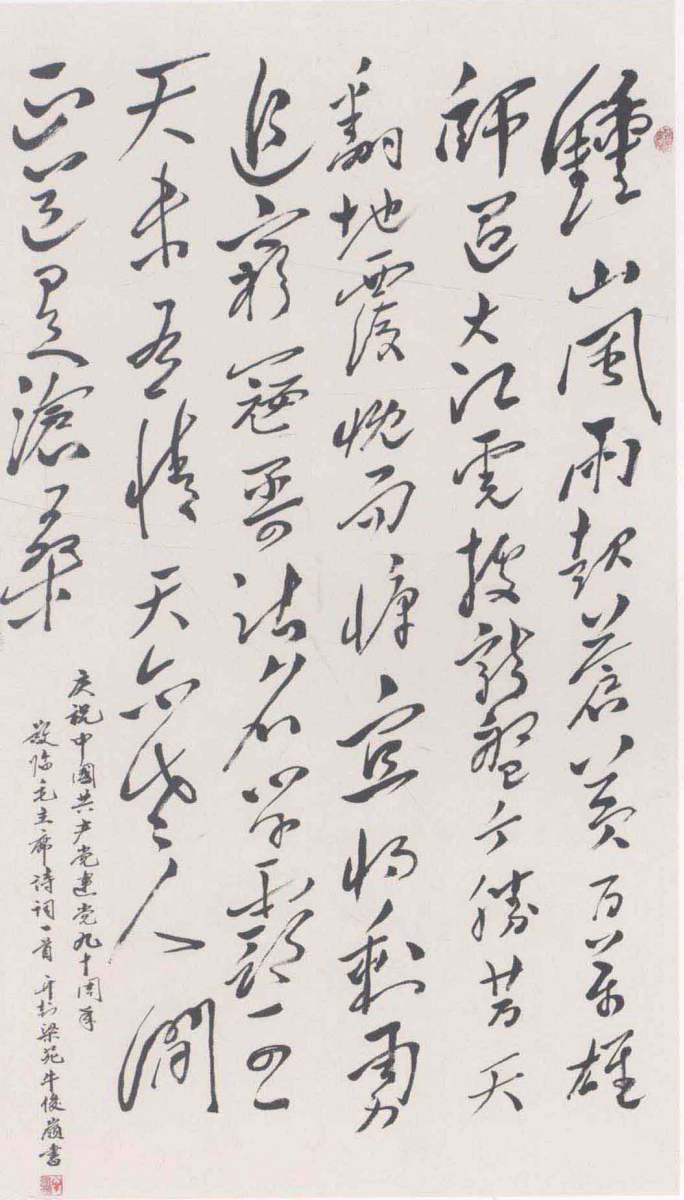 鍾山風雨起蒼黃百萬雄
師過大江虎據龍盤今勝昔天
翻地覆慨而慷宜將剩勇
追窮寇不可沽名學霸王
天若有情天亦老人間
正道是滄桑
庆祝中國共产党建党九十周年
敬临毛主席诗词一首 开封梁苑牛俊嶺書